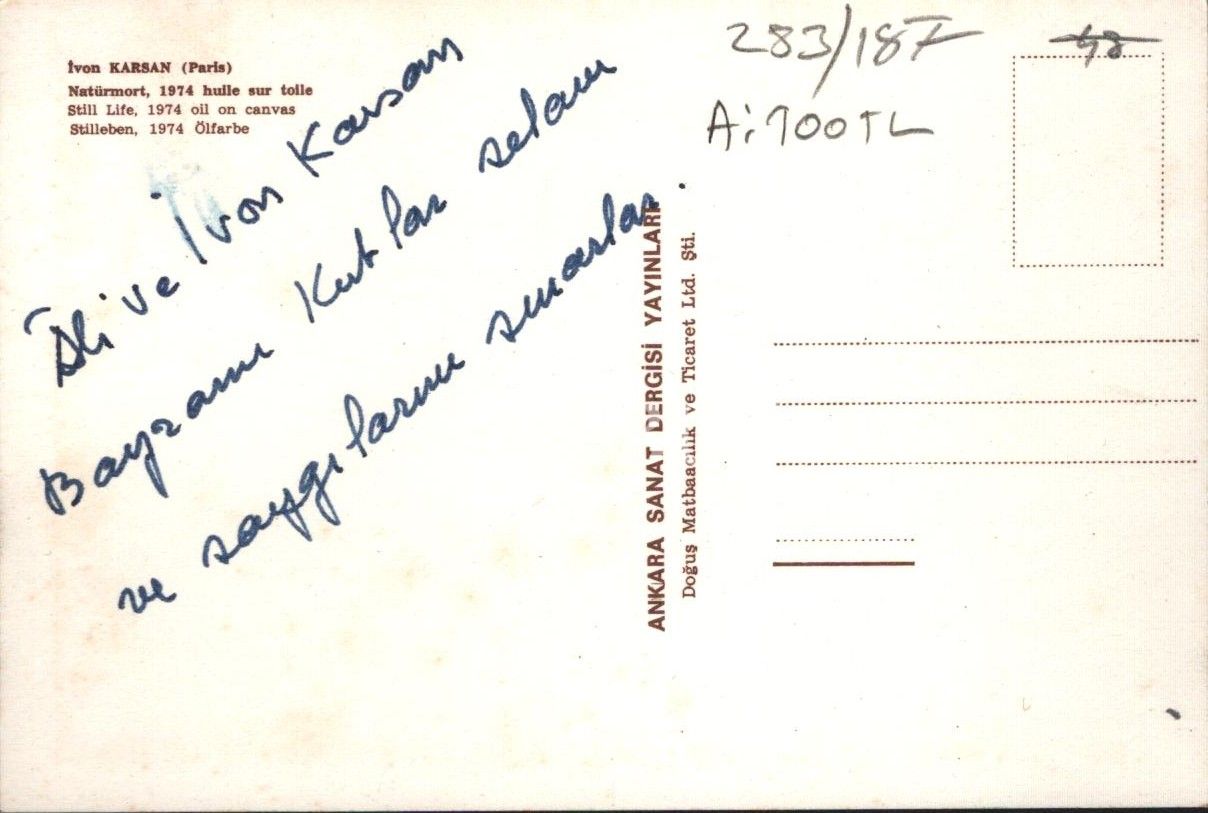 İvon KARSAN (Paris)
Natürmort, 1974 huile sur toile
Still Life, 1974 oil on canvas
Stilleben, 1974 Ölfarbe
Ali ve İvon Karsan
Bayramı Kutlar selam
ve saygılarını sunarlar.
ANKARA SANAT DERGİSİ YAYINLARI
Doğuş Matbaacılık ve Ticaret Ltd. Şti.
283/187
A: 100 TL
48